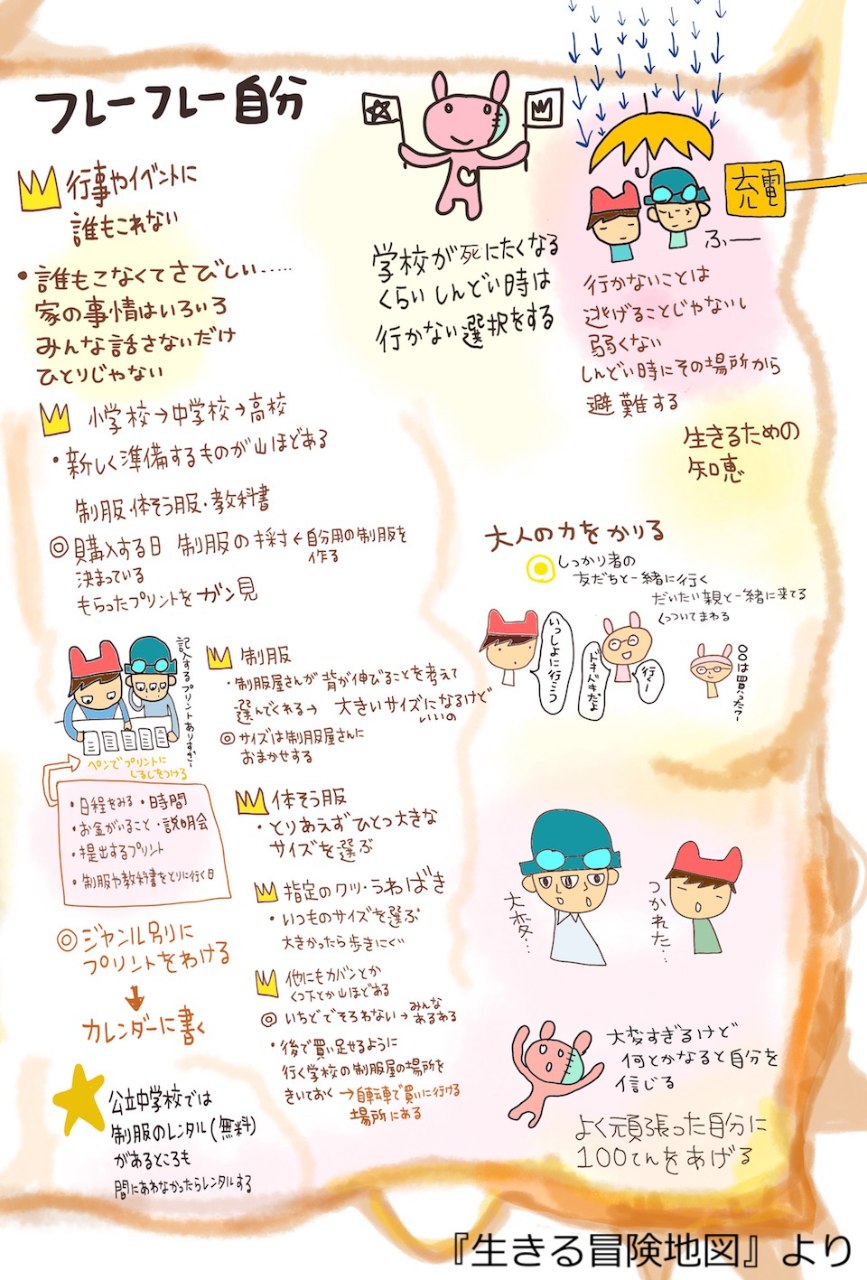 フレーフレー自分
行事やイベントに
誰もこれない
・誰もこなくてさびしい……
家の事情はいろいろ
みんな話さないだけ
ひとりじゃない
小学校→中学校→高校
・新しく準備するものが山ほどある
制服・体そう服・教科書
◎購入する日 制服の採寸←自分用の制服を
作る
決まっている
もらったプリントをガン見
記入するプリントありすぎ
ペンでプリントに
しるしをつける
・日程をみる・時間
・お金がいること・説明会
・提出するプリント
・制服や教科書をとりに行く日
◎ジャンル別に
プリントをわける
↓
カレンダーに書く
公立中学校では
制服のレンタル(無料)
があるところも
間にあわなかったらレンタルする
制服
・制服屋さんが背が伸びることを考えて
選んでくれる→大きいサイズになるけど
いいの
◎サイズは制服屋さんに
おまかせする
体そう服
・とりあえずひとつ大きな
サイズを選ぶ
指定のクツ・うわばき
・いつものサイズを選ぶ
大きかったら歩きにくい
他にもカバンとか
くつ下とか山ほどある
◎いちどでそろわない→みんな
あるある
・後で買い足せるように
行く学校の制服屋の場所を
きいておく→自転車で買いに行ける
場所にある
学校が死にたくなる
くらいしんどい時は
行かない選択をする
充電
ふー
行かないことは
逃げることじゃないし
弱くない
しんどい時にその場所から
避難する
生きるための
知恵
大人の力をかりる
しっかり者の
友だちと一緒に行く
だいたい親と一緒に来てる
くっついてまわる
いっしょに行こう
ドキドキだよ
行こー
○○は買った?
大変…
つかれた…
大変すぎるけど
何とかなると自分を
信じる
よく頑張った自分に
100てんをあげる
『生きる冒険地図』より